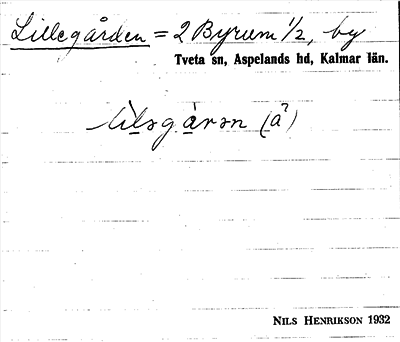 Lillegården = 2 Byrum 1/2, by
Tveta sn, Aspelands hd, Kalmar län.
(å?)
NILS HENRIKSON 1932